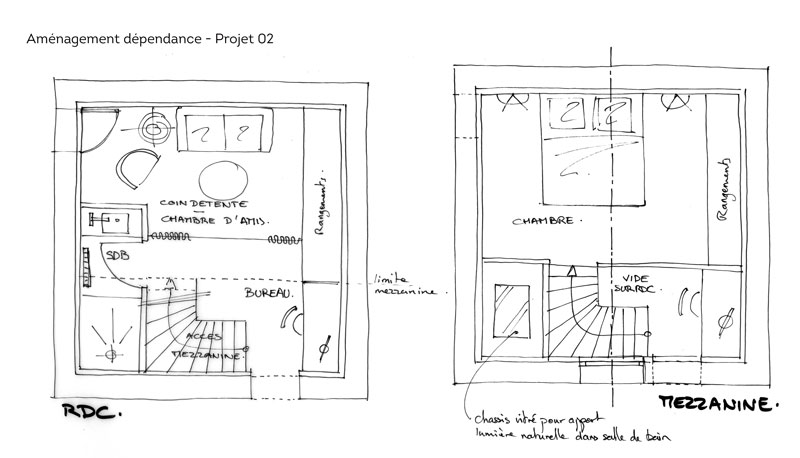 Aménagement dépendance - Projet 02
COIN DETENTE
CHAMBRE D'AMIS.
Rangements.
SDB
BUREAU.
limite
mezzanine.
ACCES
MEZZANINE.
RDC.
CHAMBRE.
Rangements
VIDE
SUR RDC.
MEZZANINE.
Chassis vitré pour apport
lumière naturelle dans salle de bain